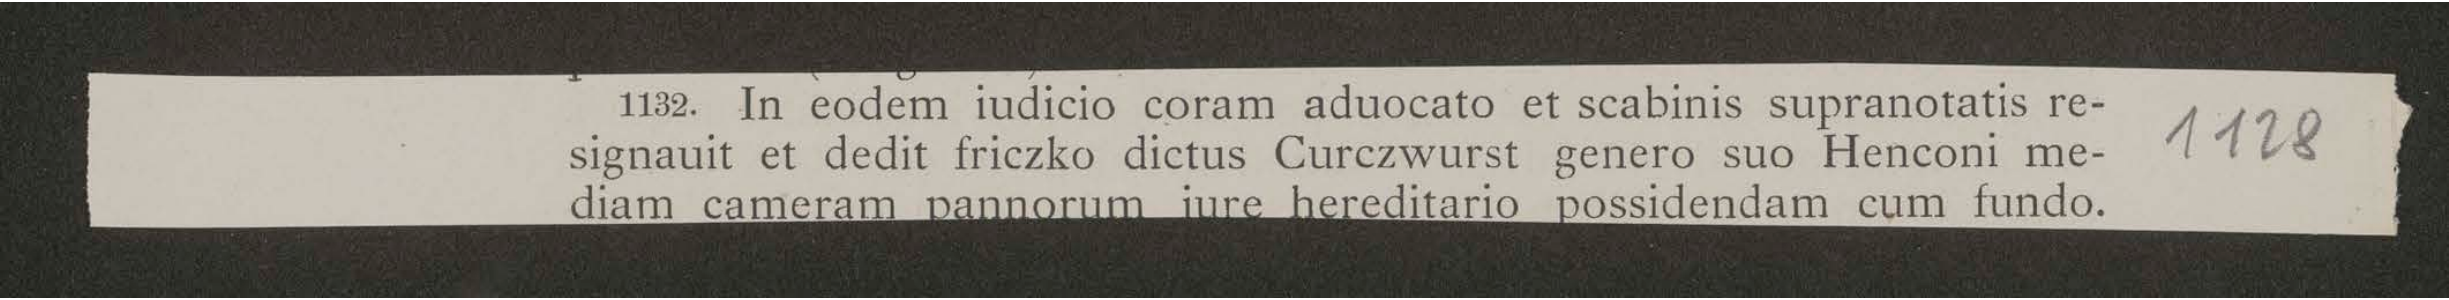 1132. In eodem iudicio coram aduocato et scabinis supranotatis re-
signauit et dedit friczko dictus Curczwurst genero suo Henconi me-
diam cameram pannorum iure hereditario possidendam cum fundo.
1128